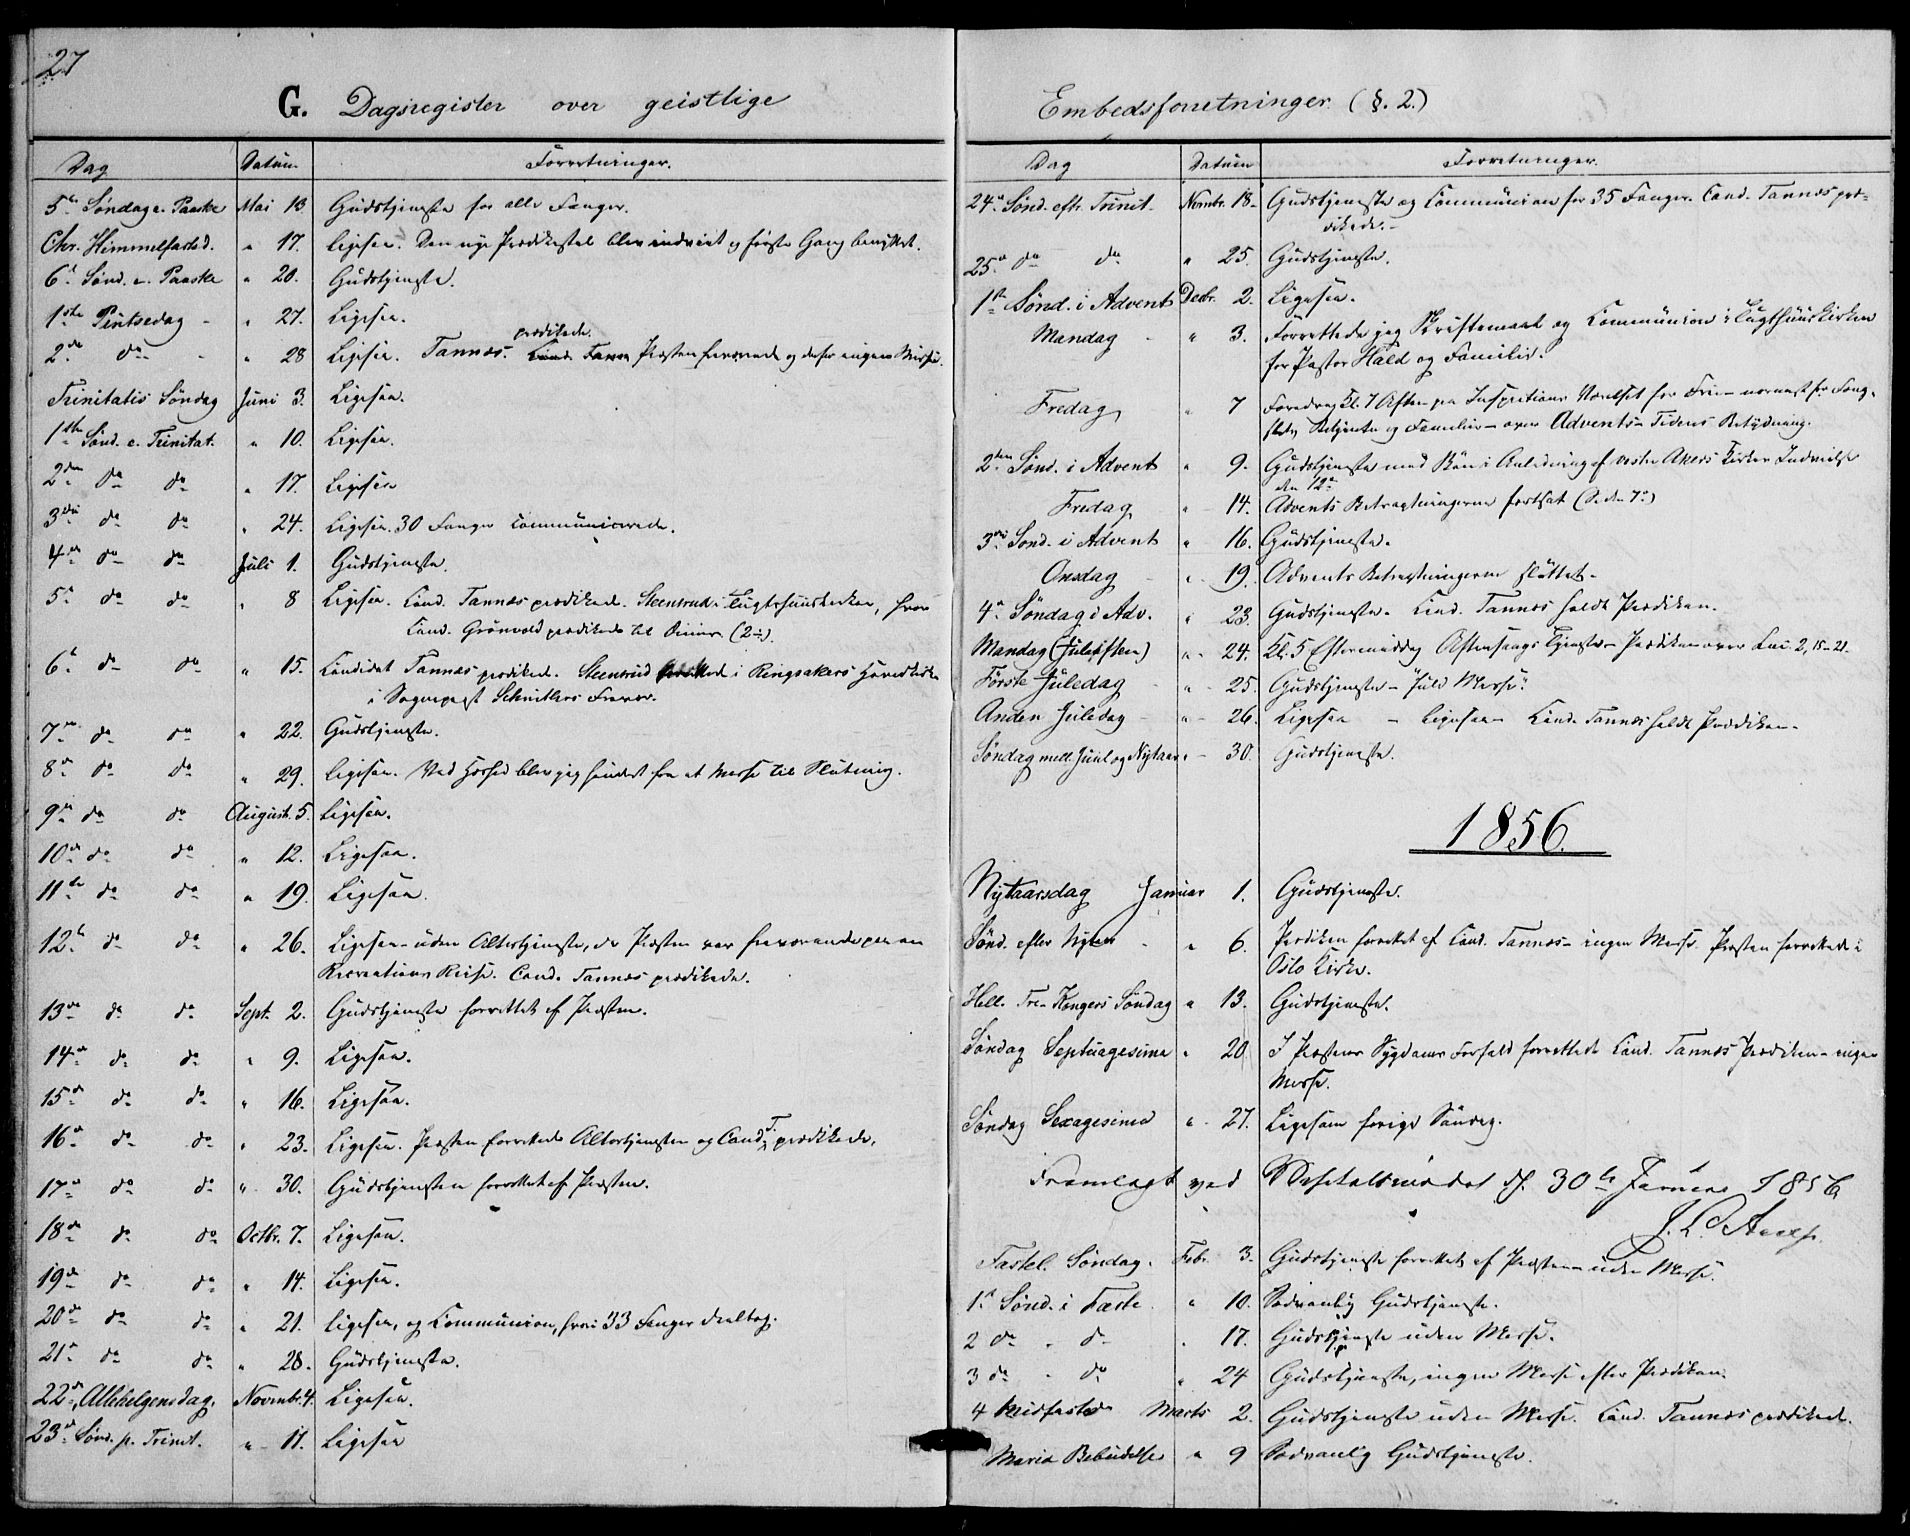 27
G. Dagsregister over geistlige
Dag Datum Forretninger.
5te Søndag e. Paaske Mai 13 Gudstjeneste for alle Fanger.
Chr. Himmelfartsd. " 17. Ligesaa. Den nye Prædikestol blev indviet og første Gang benyttet.
6te Sønd. e. Paaske " 20. Gudstjeneste.
1ste Pintsedag - " 27. Ligesaa.
prædikede.
2den do - " 28 Ligesaa. Tannæs. Præsten fraværende og derfor ingen Messe.
Trinitatis Søndag Juni 3. Ligesaa.
1ste Sønd. e. Trinitat. " 10. Ligesaa.
2den do do " 17. Ligesaa
3die do do " 24. Ligesaa. 30 Fanger communicerede.
4de do do Juli 1. Gudstjeneste.
5te do do " 8 Ligesaa. Cand. Tannæs prædikede. Steensrud i Tugthuuskirken, hvor
Cand. Grönvold prædikede til
6te do do " 15. Candidat Tannæs prædikede. Steensrud i Ringsakers Hovedkirke
i Sognepræst Schnitlers Fravær.
7de do do " 22. Gudstjeneste.
8de do do " 29. Ligesaa. Ved blev jeg hindret fra at messe til Slutning.
9de do do August. 5. Ligesaa.
10de do do " 12. Ligesaa.
11te do do " 19. Ligesaa.
12te do do " 26. Ligesaa - uden Altertjeneste, da Præsten var fraværende paa en
Recreations Reise. Cand. Tannæs prædikede.
13de do do Sept. 2. Gudstjeneste forrettet af Præsten.
14de do do " 9. Ligesaa.
15de do do " 16. Ligesaa.
16de do do " 23. Ligesaa. Præsten forrettede Altertjenesten og Cand. T. prædikede.
17de do do " 30. Gudstjenesten forrettet af Præsten.
18de do do Octbr. 7. Ligesaa.
19de do do " 14. Ligesaa.
20de do do " 21. Ligesaa, og Communion, hvori 33 Fanger deeltog.
21de do do " 28. Gudstjeneste.
22de, Allehelgensdag. Novembr. 4. Ligesaa.
23de Sønd. p. Trinit. " 11. Ligesaa
Embedsforretninger. (§. 2.)
Dag Datum Forretninger.
24de Sønd. eft. Trinit. Novmbr. 18. Gudstjeneste og Communion for 35 Fanger. Cand. Tannæs præ-
dikede. -
25de do do " 25. Gudstjeneste.
1ste Sønd. i Advent Decbr. 2. Ligesaa.
Mandag - " 3. Forrettede jeg Skriftemaal og Communion i Tugthuuskirken
for Pastor Hald og Familie.
Fredag " 7 Foredrag Kl. 7 Aften paa Inspections Værelset for Frie - nærmest for Fæng-
slets Betjente og Familier - over Advents-Tidens Betydning.
2den Sønd. i Advent " 9. Gudstjeneste med Bön i Anledning af vestre Akers Kirkes Indvielse
den 12te
Fredag " 14. Advents Betragtningerne fortsat (S. den 7de)
3die Sønd. i Advent " 16. Gudstjeneste.
Onsdag - " 19. Advents Betragtningerne sluttet -
4de Søndag i Adv. " 23. Gudstjeneste. Cand. Tannæs holdt Prædiken.
Mandag (Juleaften) " 24. Kl. 5 Eftermiddag Aftensangs Tjeneste - Prædiken over Luc. 2, 15-21.
Første Juledag - " 25. Gudstjeneste - "Jule Messe".
Anden Juledag - " 26. Ligesaa - ligesaa - Cand. Tannæs holdt Prædiken -
Søndag mell. Juul og Nytaar " 30. Gudstjeneste.
1856.
Nytaarsdag Januar 1. Gudstjeneste.
Sönd. efter Nytaar - " 6. Prædiken forrettet af Cand. Tannæs - ingen Messe. Præsten forrettede i
Oslo Kirke.
Hell. Tre Kongers Söndag " 13. Gudstjeneste.
Söndag Septuagesima " 20. I Præstens Sygdoms Forfald forrettede Cand. Tannæs Prædiken - ingen
Messe.
Söndag Sexagesima " 27. Ligesom forige Söndag.
Fremlagt ved den 30te Januar 1856
Fastel. Söndag. Febr. 3. Gudstjeneste forrettet af Præsten - uden Messe.
1ste Sönd. i Faste. " 10. Sædvanlig Gudstjeneste.
2 do " do " 17. Gudstjeneste uden Messe.
3 do " do " 24 Gudstjeneste, ingen Messe efter Prædiken.
4 Midfaste do Marts 2. Gudstjeneste uden Messe. Cand. Tannæs prædikede.
Mariæ Bebudelse " 9 Sædvanlig Gudstjeneste.